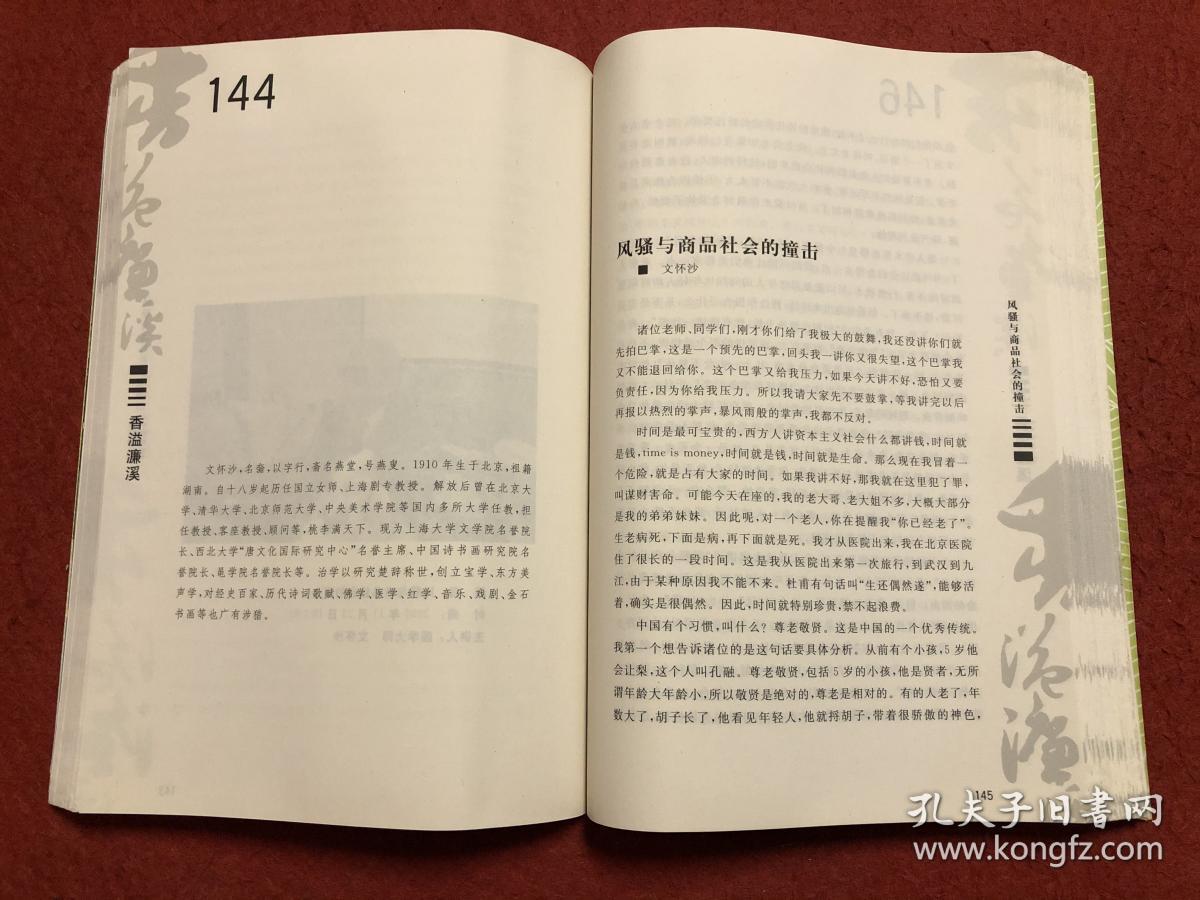 144
香溢濂溪
文怀沙,名斋,以字行,斋名燕堂,号燕叟。1910年生于北京,祖籍
湖南。自十八岁起历任国立女师、上海剧专教授。解放后曾在北京大
学、清华大学、北京师范大学、中央美术学院等国内多所大学任教,担
任教授、客座教授、顾问等,桃李满天下。现为上海大学文学院名誉院
长、西北大学“唐文化国际研究中心”名誉主席、中国诗书画研究院名
誉院长、邕学院名誉院长等。治学以研究楚辞称世,创立宝学、东方美
声学,对经史百家、历代诗词歌赋、佛学、医学、红学、音乐、戏剧、金石
书画等也广有涉猎。
风骚与商品社会的撞击
■ 文怀沙
诸位老师、同学们,刚才你们给了我极大的鼓舞,我还没讲你们就
先拍巴掌,这是一个预先的巴掌,回头我一讲你又很失望,这个巴掌我
又不能退回给你。这个巴掌又给我压力,如果今天讲不好,恐怕又要
负责任,因为你给我压力。所以我请大家先不要鼓掌,等我讲完以后
再报以热烈的掌声,暴风雨般的掌声,我都不反对。
时间是最可宝贵的,西方人讲资本主义社会什么都讲钱,时间就
是钱,time is money,时间就是钱,时间就是生命。那么现在我冒着一
个危险,就是占有大家的时间。如果我讲不好,那我就在这里犯了罪,
叫谋财害命。可能今天在座的,我的老大哥、老大姐不多,大概大部分
是我的弟弟妹妹。因此呢,对一个老人,你在提醒我“你已经老了”。
生老病死,下面是病,再下面就是死。我才从医院出来,我在北京医院
住了很长的一段时间。这是我从医院出来第一次旅行,到武汉到九
江,由于某种原因我不能不来。杜甫有句话叫“生还偶然遂”,能够活
着,确实是很偶然。因此,时间就特别珍贵,禁不起浪费。
中国有个习惯,叫什么?尊老敬贤。这是中国的一个优秀传统。
我第一个想告诉诸位的是这句话要具体分析。从前有个小孩,5岁他
会让梨,这个人叫孔融。尊老敬贤,包括5岁的小孩,他是贤者,无所
谓年龄大年龄小,所以敬贤是绝对的,尊老是相对的。有的人老了,年
数大了,胡子长了,他看见年轻人,他就捋胡子,带着很骄傲的神色,
风骚与商品社会的撞击
145
孔夫子旧书网
www.kongfz.com